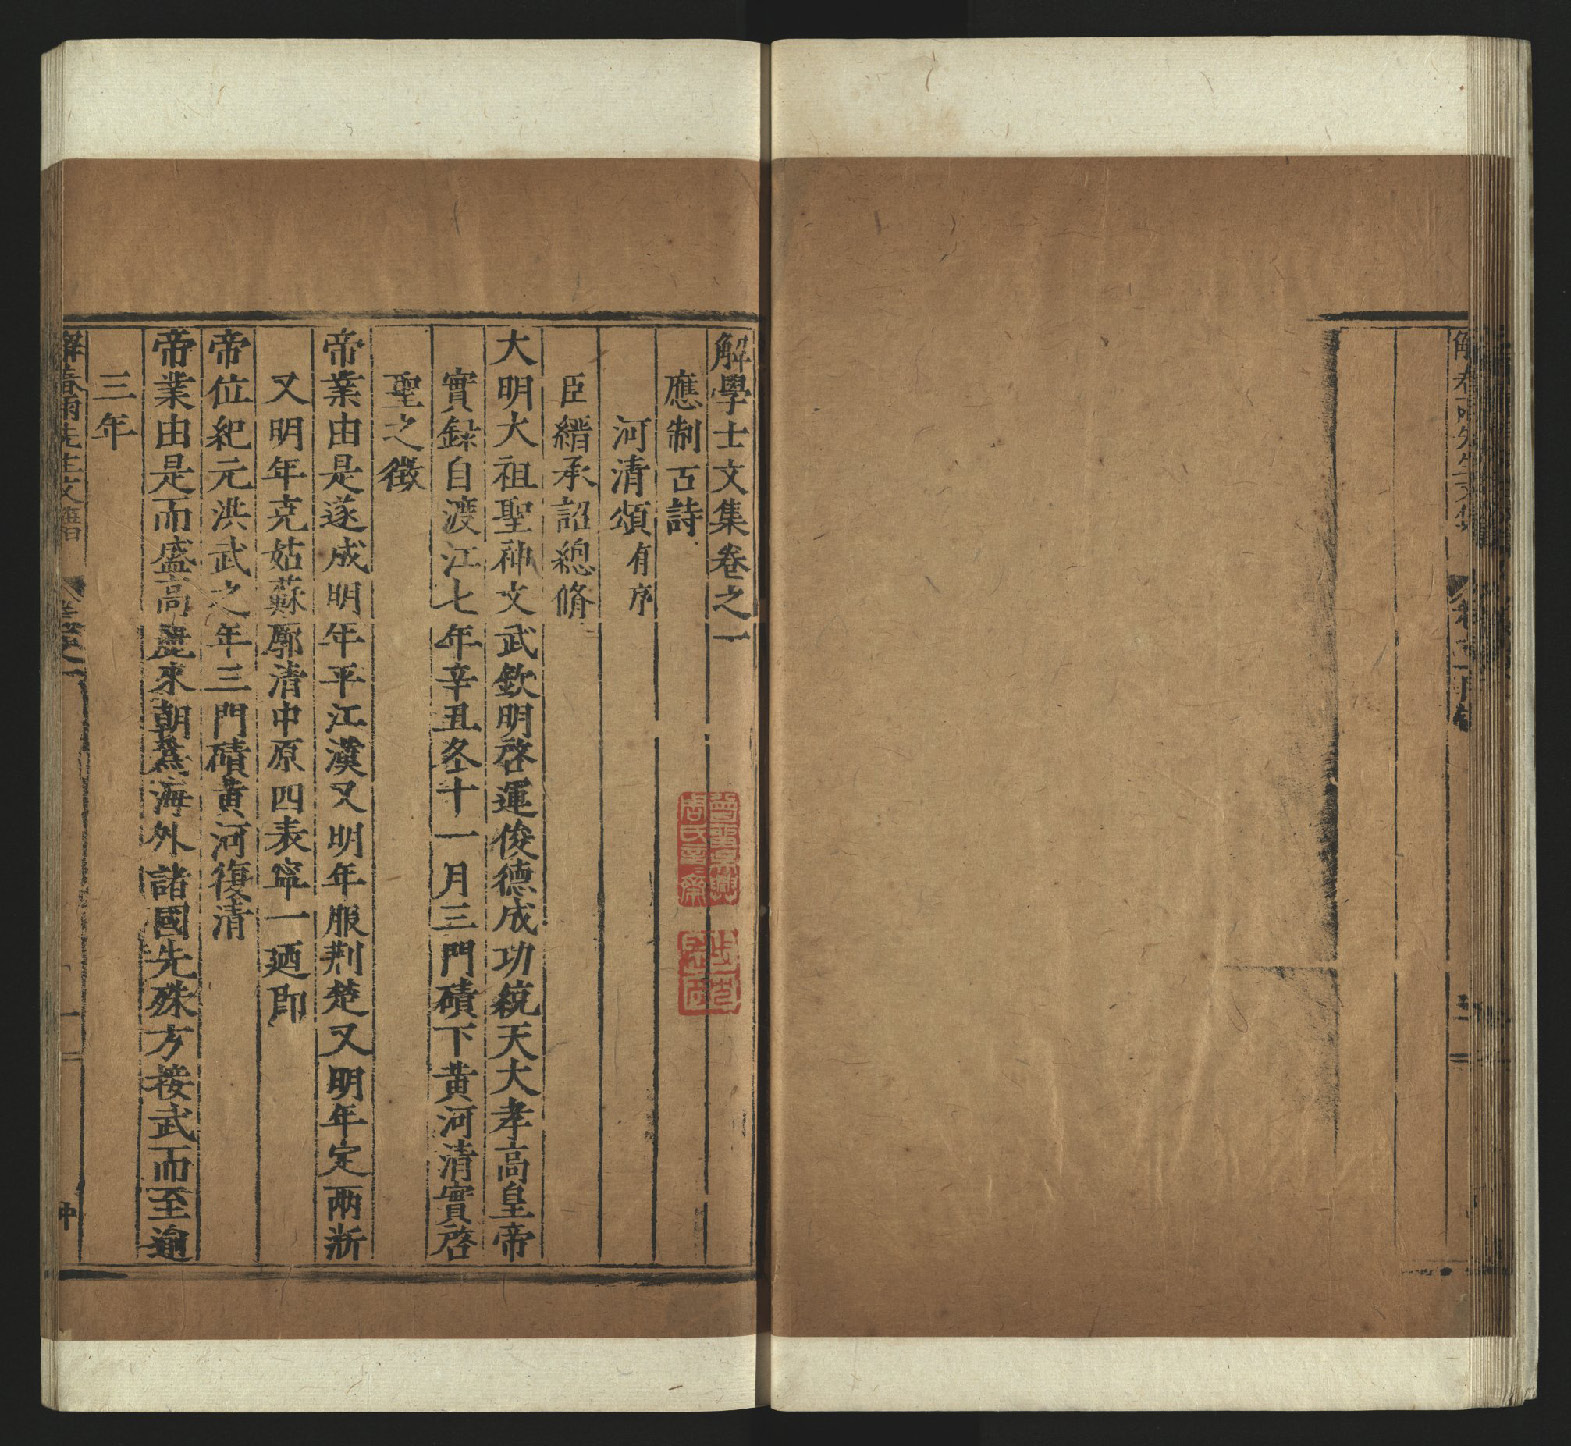 解學士文集卷之一
應制古詩
河清頌有序
臣縉承詔總脩
大明太祖聖神文武欽明啓運俊德成功統天大孝高皇帝
實錄自渡江七年辛丑冬十一月三門磧下黃河清實啓
聖之徵
帝業由是遂成明年平江漢又明年服荆楚又明年定兩浙
又明年克姑蘇廓清中原四表寧一廼即
帝位紀元洪武之年三門磧黃河復清
帝業由是而盛高麗來朝蕉海外諸國先殊方接武而至逈
三年
解春雨先生文集